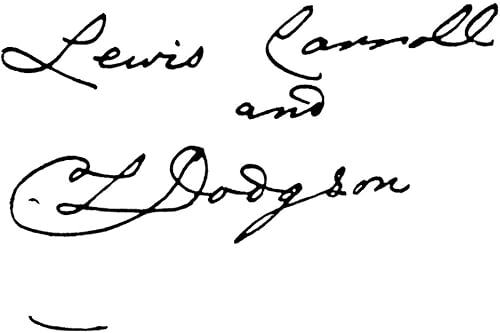 Lewis Carroll
and
C L Dodgson